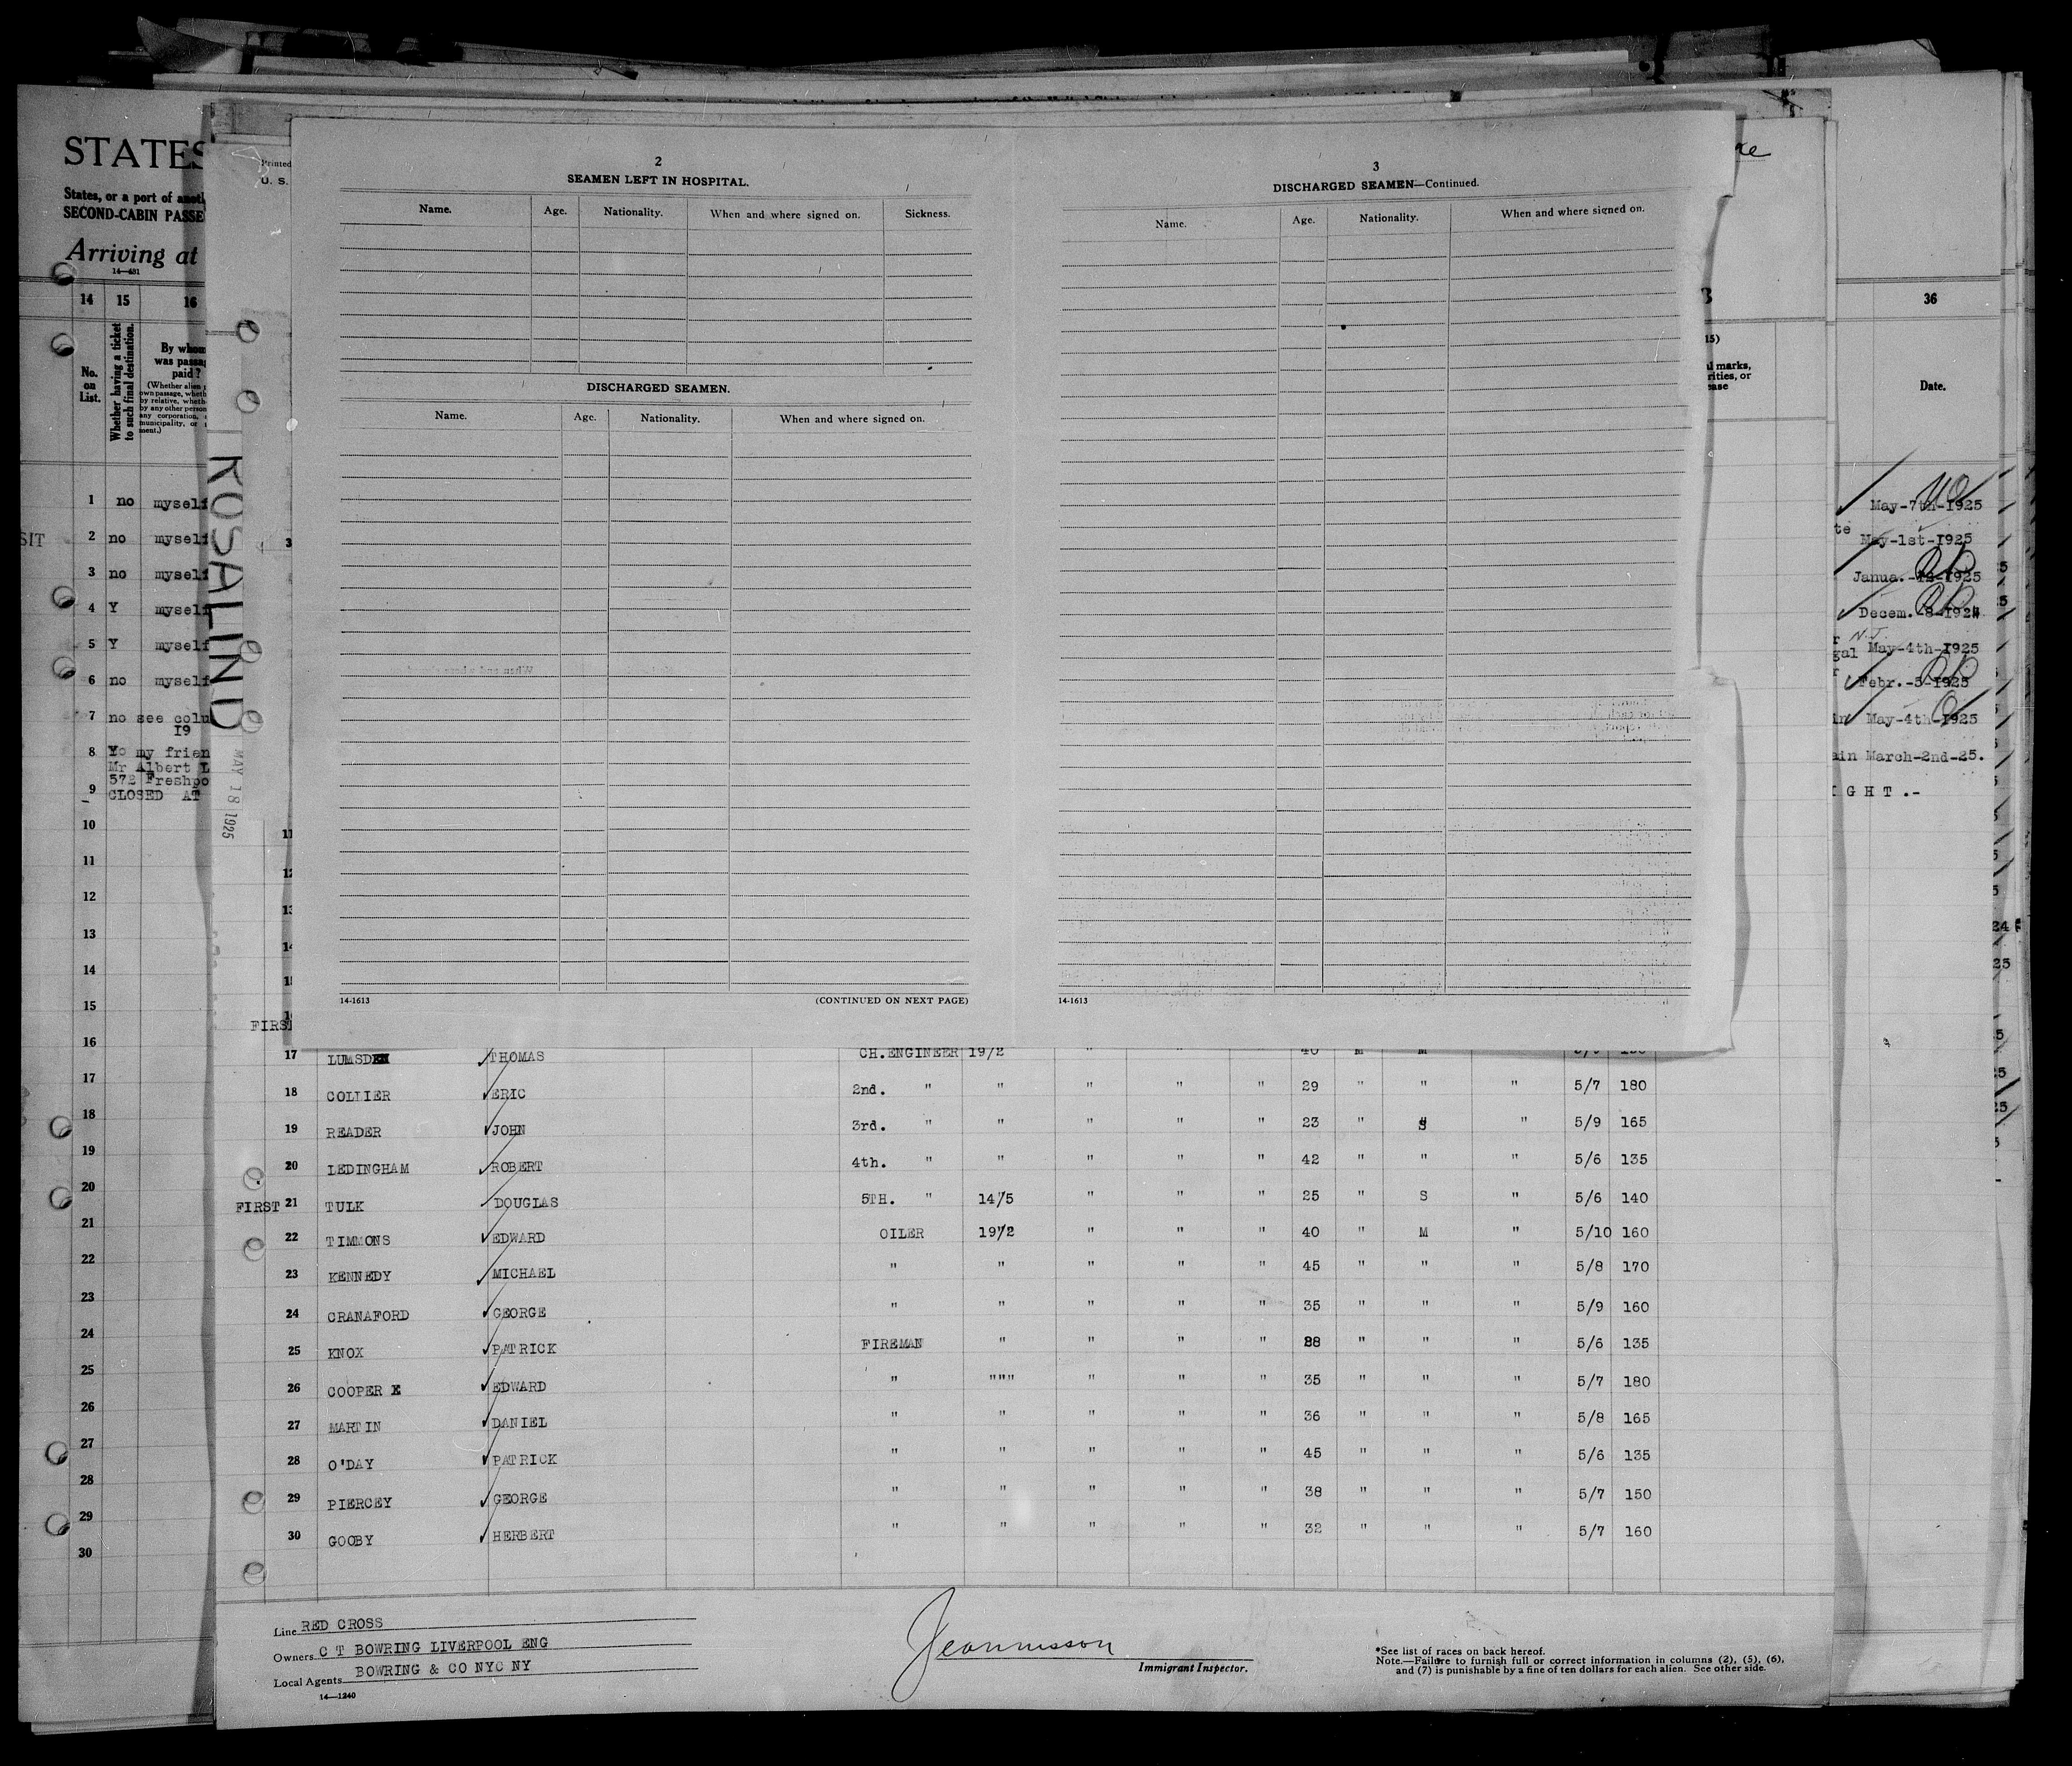 STATES
States, or a port of anoth
SECOND-CABIN PASSE
Arriving at
14—481
14 15 16
No. on List.
Whether having a ticket to such final destination.
By whom was passage paid?
(Whether alien
own passage, wheth
by relative, wheth
by any other person
any corporation,
municipality, or
ment.)
1 no myself
2 no myself
3 no myself
4 Y myself
5 Y myself
6 no myself
7 no see colu
19
8 my frien
Mr Albert L
572 Freshpo
9 CLOSED AT
10
11
12
13
14
15
16
17
18
19
20
21
22
23
24
25
26
27
28
29
30
SIT
Printed
U. S.
ROSALIND
MAY 18 1925
2
SEAMEN LEFT IN HOSPITAL.
Name. Age. Nationality. When and where signed on. Sickness.
DISCHARGED SEAMEN.
Name. Age. Nationality. When and where signed on.
14-1613 (CONTINUED ON NEXT PAGE)
3
DISCHARGED SEAMEN—Continued.
Name. Age. Nationality. When and where signed on.
14-1613
15)
al marks,
rities, or
ease
36
Date.
May-7th-1925
May-1st-1925
Janua.-12-1925
Decem.-8-1924
N.J.
May-4th-1925
Febr.-5-1925
May-4th-1925
ain March-2nd-25.
I G H T .-
11
12
13
FIRST
17 LUMSDEN THOMAS CH.ENGINEER 19/2 " " " 40 M M
18 COLLIER ERIC 2nd. " " " " " 29 " " " 5/7 180
19 READER JOHN 3rd. " " " " " 23 " S " 5/9 165
20 LEDINGHAM ROBERT 4th. " " " " " 42 " " " 5/6 135
FIRST 21 TULK DOUGLAS 5TH. " 14/5 " " " 25 " S " 5/6 140
22 TIMMONS EDWARD OILER 19/2 " " " 40 " M " 5/10 160
23 KENNEDY MICHAEL " " " " " 45 " " " 5/8 170
24 CRANAFORD GEORGE " " " " " 35 " " " 5/9 160
25 KNOX PATRICK FIREMAN " " " " 38 " " " 5/6 135
26 COOPER EDWARD " """ " " " 35 " " " 5/7 180
27 MARTIN DANIEL " " " " " 36 " " " 5/8 165
28 O'DAY PATRICK " " " " " 45 " " " 5/6 135
29 PIERCEY GEORGE " " " " " 38 " " " 5/7 150
30 GOOBY HERBERT " " " " " 32 " " " 5/7 160
Line RED CROSS
Owners C T BOWRING LIVERPOOL ENG
Local Agents BOWRING & CO NYC NY
14—1240
Immigrant Inspector.
*See list of races on back hereof.
Note.—Failure to furnish full or correct information in columns (2), (5), (6),
and (7) is punishable by a fine of ten dollars for each alien. See other side.